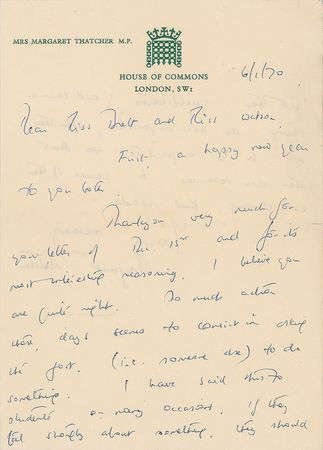 MRS MARGARET THATCHER M.P.
HOUSE OF COMMONS
LONDON, SW1
6/1/70
Dear Miss and Miss Watson
First a happy new year
to you both.
Thankyou very much for
your letter of Dec. 15th and for its
most interesting reasoning. I believe you
are quite right. So much action
these days seems to consist in asking
the govt. (i.e. someone else) to do
something. I have said this to
students on many occasions. If they
feel strongly about something, they should